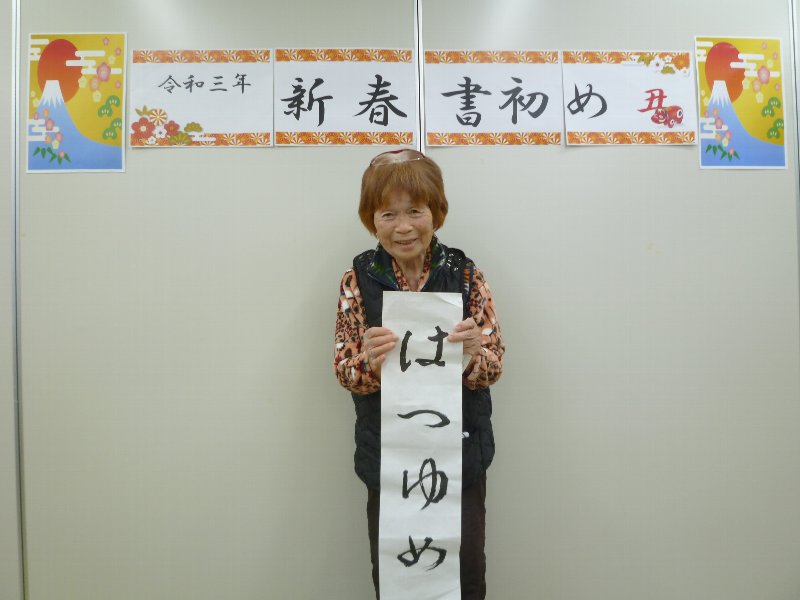 令和三年 新春 書初め 丑
はつゆめ